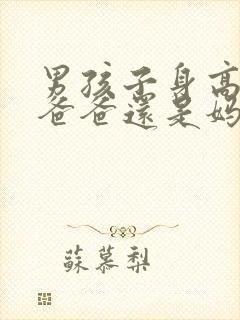 男孩子身高
爸爸還是媽
蘇慕梨